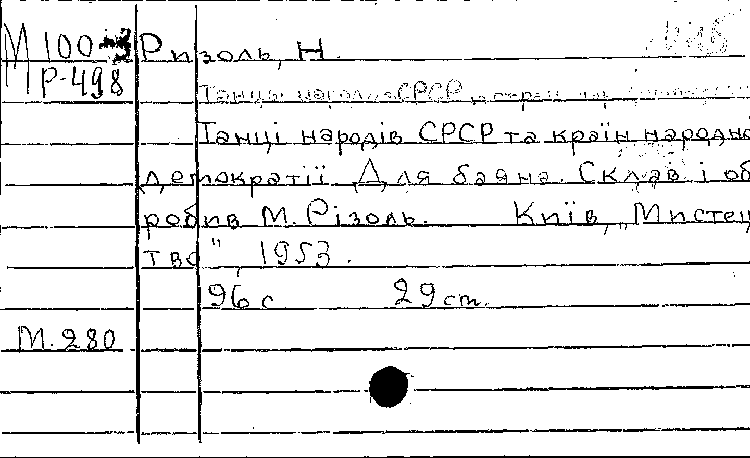 М 100-3 Ризоль, Н.
Р-498
Танці народів СРСР та країн народно
демократії. Для баяна. Склав і об
робив М. Різоль. Київ, „Мистец
тво", 1953.
96 с 29 ст.
М. 280